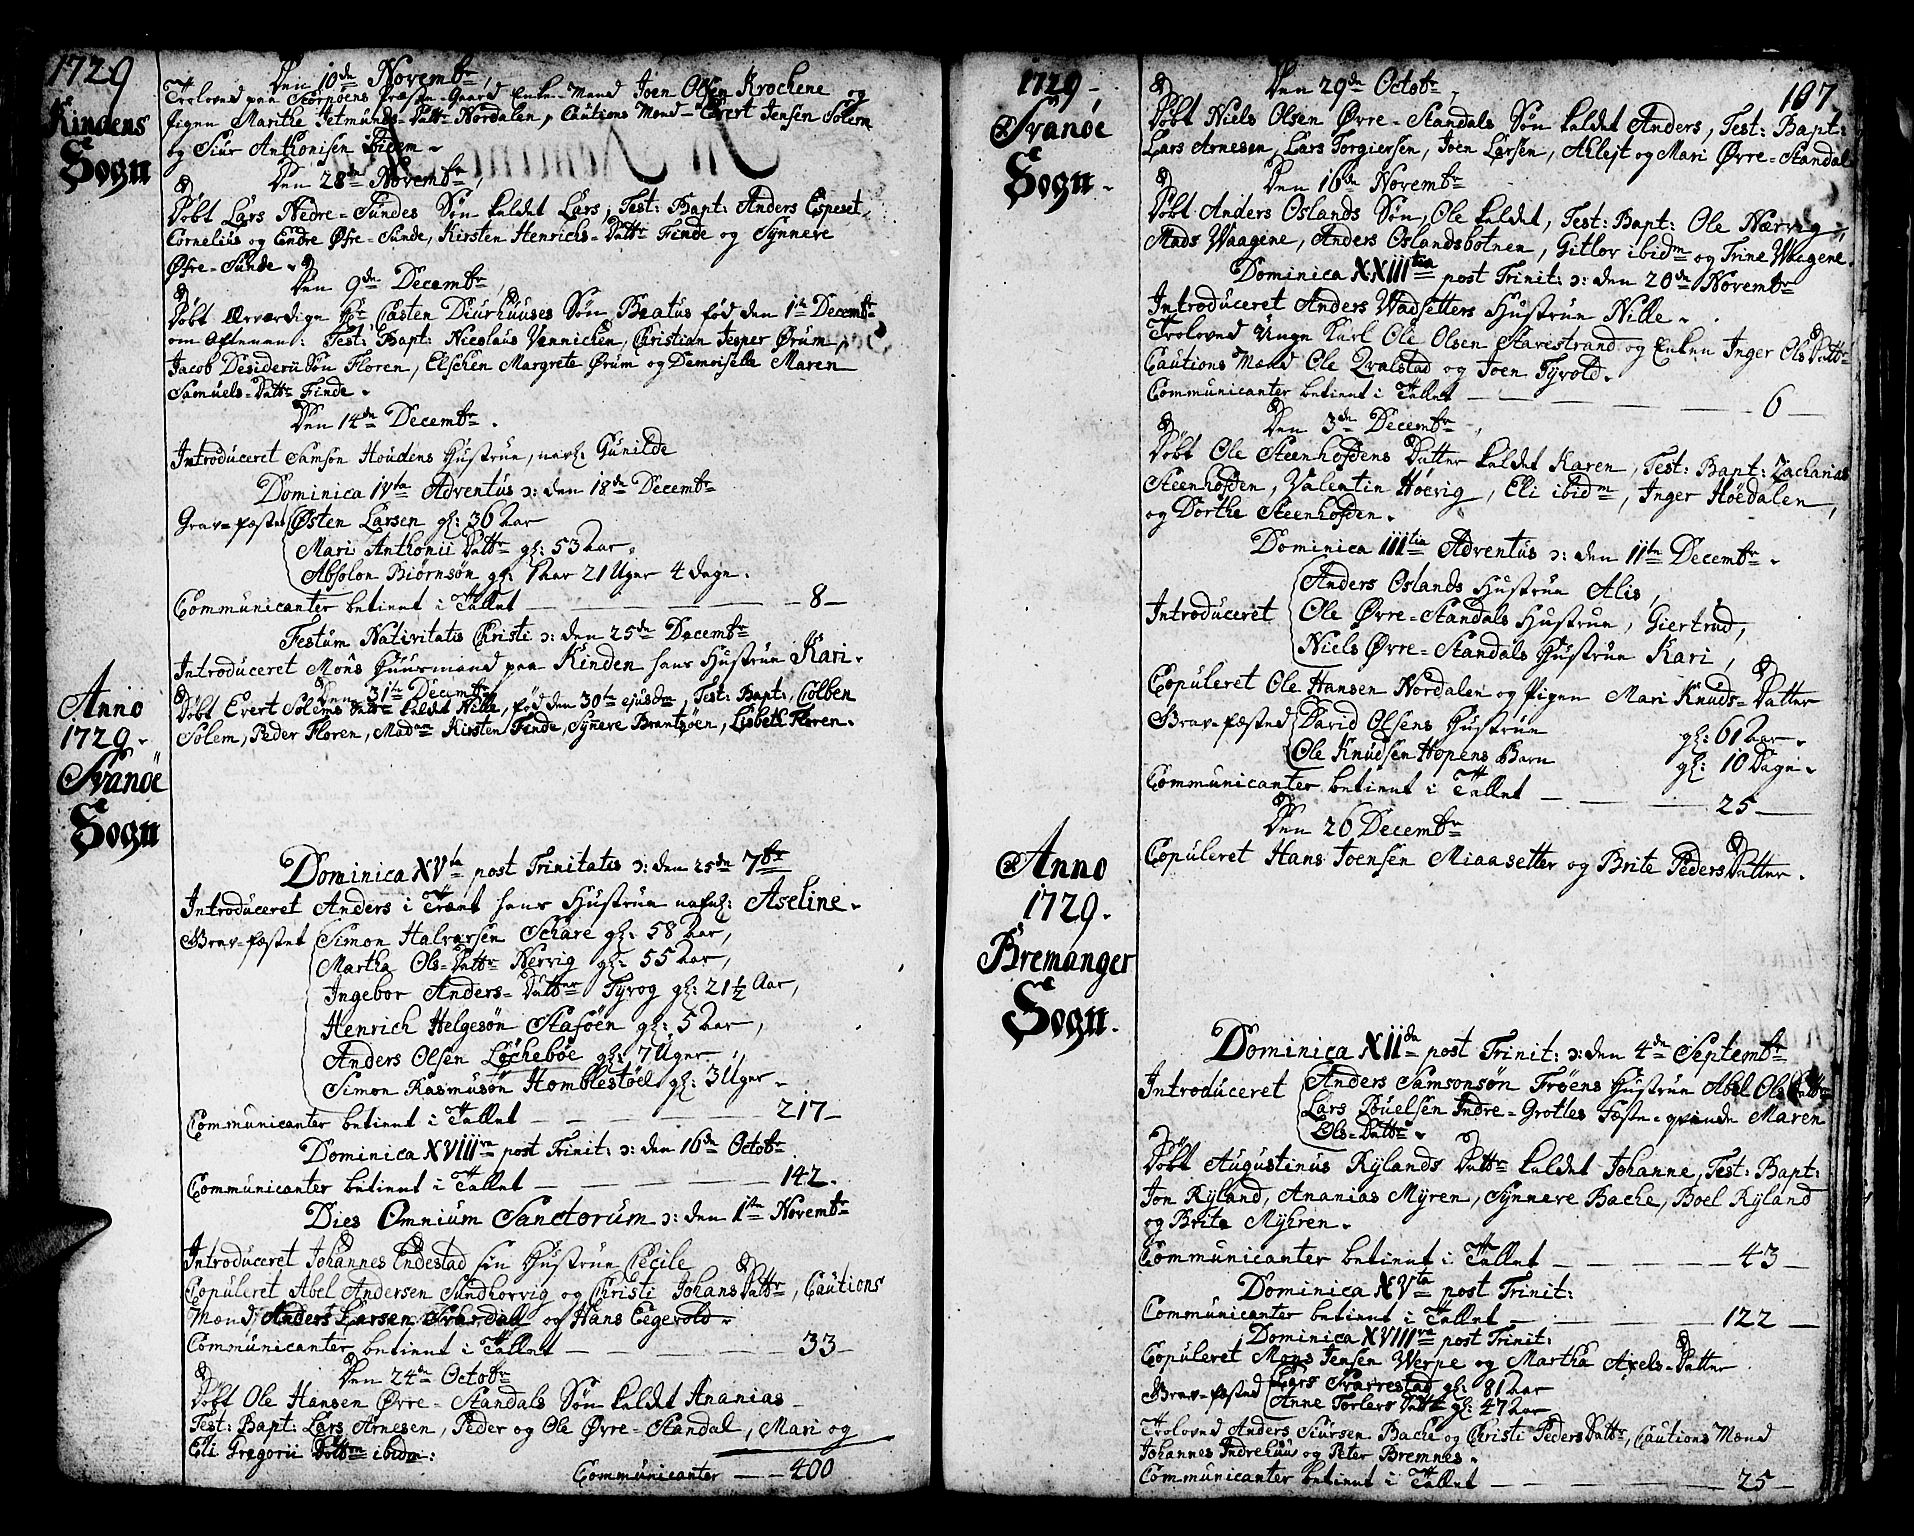 1729
Kindens
Sogn
Den 10de Novembr
Troloved paa Storøens Præste-Gaard Enke-Mand Joen Olsen Krochene og
Pigen Marithe Jetmunds-Dattr Nordalen, Cautions Mænd Evert Jensen Solem
og Siur Anthonisen ibidem.
Den 28de Novembr,
Døbt Lars Nedre-Sundes Søn kaldet Lars, Test: Bapt: Anders Espeset,
Cornelius og Endre Øfre-Sunde, Kirsten Henrichs-Dattr Finde og Synneve
Øfre-Sunde.
Den 9de Decembr,
Døbt Ærværdige Hr Casten Diurhuuses Søn Beatus fød den 1te Decembr
om Aftenen: Test: Bapt: Nicolaus Vennichen, Christian Jesper Ørum,
Jacob Desiderii Søn Floren, Elschen Margrete Ørum og Demoiselle Maren
Samuels-Dattr Finde.
Den 14de Decembr.
Introduceret Samson Houdens Hustrue, navnl: Gunilde
Dominica IVta Adventus ɔ: den 18de Decembr
Grav-fæstet Østen Larsen gl: 36 Aar
Mari Anthonii Dattr gl: 53 Aar.
Absolon Biørnsøn gl: 1 Aar 21 Uger 4 Dage.
Communicanter betient i Tallet — 8 —
Festum Nativitatis Christi ɔ: den 25de Decembr
Introduceret Mons Huusmand paa Kinden hans Hustrue Kari.
Den 31te Decembr
Døbt Evert Solems Dattr kaldet Nille, fød den 30te ejusdm Test: Bapt: Colben
Solem, Peder Floren, Madam Kirsten Finde, Synere Brantzøen, Lisbeth Floren.
Anno
1729.
Svanöe
Sogn
Dominica XVta post Trinitatis ɔ: den 25de 7br
Introduceret Anders i Trant hans Hustrue nafnl: Aseline.
Grav-fæstet Simon Halvorsen Schare gl: 58 Aar,
Martha Ols-Dattr Nervig gl: 55 Aar,
Ingebor Anders-Datter Tyrog gl: 21½ Aar,
Henrich Helgesøn Staføen gl: 5 Aar,
Anders Olsen Løchebøe gl: 7 Uger,
Simon Rasmusøn Homblestøel gl: 3 Uger.
Communicanter betient i Tallet — 217 —
Dominica XVIIIva post Trinit: ɔ: den 16de Octobr
Communicanter betient i Tallet — 142.
Dies Omnium Sanctorum ɔ: den 1ste Novembr
Introduceret Johannes Endestad sin Hustrue Cecile
Copuleret Abel Andersen Sundhorvig og Christi Johans Dattr, Cautions
Mænd, Anders Larsen og Hans Eegevold.
Communicanter betient i Tallet — 33 —
Den 24de Octobr
Døbt Ole Hansen Øvre-Standals Søn kaldet Ananias
Test: Bapt: Lars Arnesen, Peder og Ole Øvre-Standal, Mari og
Eli Gregorii Dattr ibidm:
Communicanter — 400
1729
Svanöe
Sogn.
107
Den 29de Octobr
Døbt Niels Olsen Øvre-Standals Søn kaldet Anders, Test: Bapt:
Lars Arnesen, Lars Torgiersen, Joen Larsen, Allejt og Mari Øvre-Standal
Den 16de Novembr
Døbt Anders Oslands Søn, Ole kaldet, Test: Bapt: Ole Nærvig,
Mads Waagene, Anders Oslandsbotnen, Gitlov ibidm og Trine Waagene.
Dominica XXIIItia post Trinit: ɔ: den 20de Novembr
Introduceret Anders Wadsetters Hustrue Nille.
Troloved Unge Karl Ole Olsen Starestrand og Enken Inger Ols Dattr
Cautions Mænd Ole Qvalstad og Joen Tyrold.
Communicanter betient i Tallet — 6 —
Den 3de Decembr,
Døbt Ole Steenhofdens Datter kaldet Karen, Test: Bapt: Zacharias
Steenhofden, Valentin Høevig, Eli ibidm, Inger Høedalen,
og Dorthe Steenhofden.
Dominica IIItia Adventus ɔ: den 11te Decembr.
Introduceret Anders Oslands Hustrue Alis,
Ole Øvre-Standals Hustrue, Giertrud,
Niels Øvre-Standals Hustrue Kari,
Copuleret Ole Hansen Nordalen og Pigen Mari Knuds-Datter
Grav-fæsted David Olsens Hustrue gl: 61 Aar.
Ole Knudsen Hopens Barn gl: 10 Dage.
Communicanter betient i Tallet — 25 —
Den 26 Decembr
Copuleret Hans Joensen Miaasetter og Brite Peders Datter.
Anno
1729.
Bremanger
Sogn.
Dominica XIIde post Trinit: ɔ: den 4de Septembr
Introduceret Anders Samsonsøn Frøens Hustrue Abel Ols Dattr
Lars Pouelsen Indre-Grotles Fæste-qvinde Maren
Ols-Dattr.
Døbt Augustinus Rylands Dattr kaldet Johanne, Test: Bapt:
Jon Ryland, Ananias Myren, Synneve Bache, Boel Ryland
og Brite Myhren.
Communicanter betient i Tallet — 43 —
Dominica XVta post Trinit:
Communicanter betient i Tallet — 122 —
Dominica XVIIIva post Trinit:
Copuleret Mons Jensen Werpe og Martha Axels-Datter
Grav-fæsted Lars Svarrestad gl: 81 Aar
Anne Torlers Dattr gl: 47 Aar
Troloved Anders Siursen Bache og Christi Peders Dattr, Cautions Mænd
Johannes Indrehuus og Peter Bremnes.
Communicanter betient i Tallet — 25 —